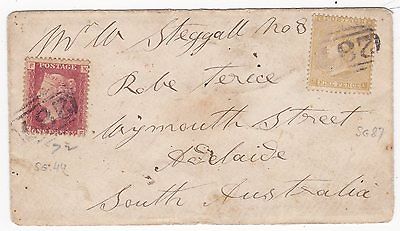 Mr W Steggall No 3
Robe Terice
Wymouth Street
Adelaide
South Australia
POSTAGE
28
28
72
SG 44
SG 87